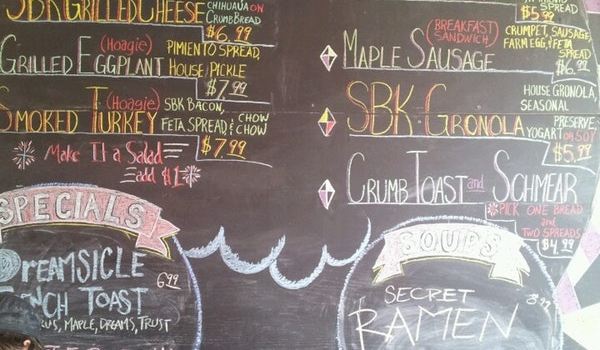 SBK GRILLED CHEESE
CHIHUAUA ON
CRUMB BREAD
$6.99
GRILLED EGGPLANT
(Hoagie)
PIMIENTO SPREAD,
HOUSE PICKLE
$7.99
SMOKED TURKEY
(Hoagie)
SBK BACON,
FETA SPREAD & CHOW
CHOW
$7.99
Make It a Salad
add $1
SPECIALS
DREAMSICLE
TOAST
6.99
MAPLE, DREAMS, TRUST
SPREAD
$5.99
MAPLE SAUSAGE
(BREAKFAST
SANDWICH)
CRUMPET, SAUSAGE,
FARM EGG & FETA
SPREAD
$6.99
SBK GRONOLA
HOUSE GRONOLA,
SEASONAL
PRESERVE
YOGART OR SOY
$5.99
CRUMB TOAST and SCHMEAR
*PICK ONE BREAD
and
TWO SPREADS
$4.99
SOUPS
SECRET
RAMEN